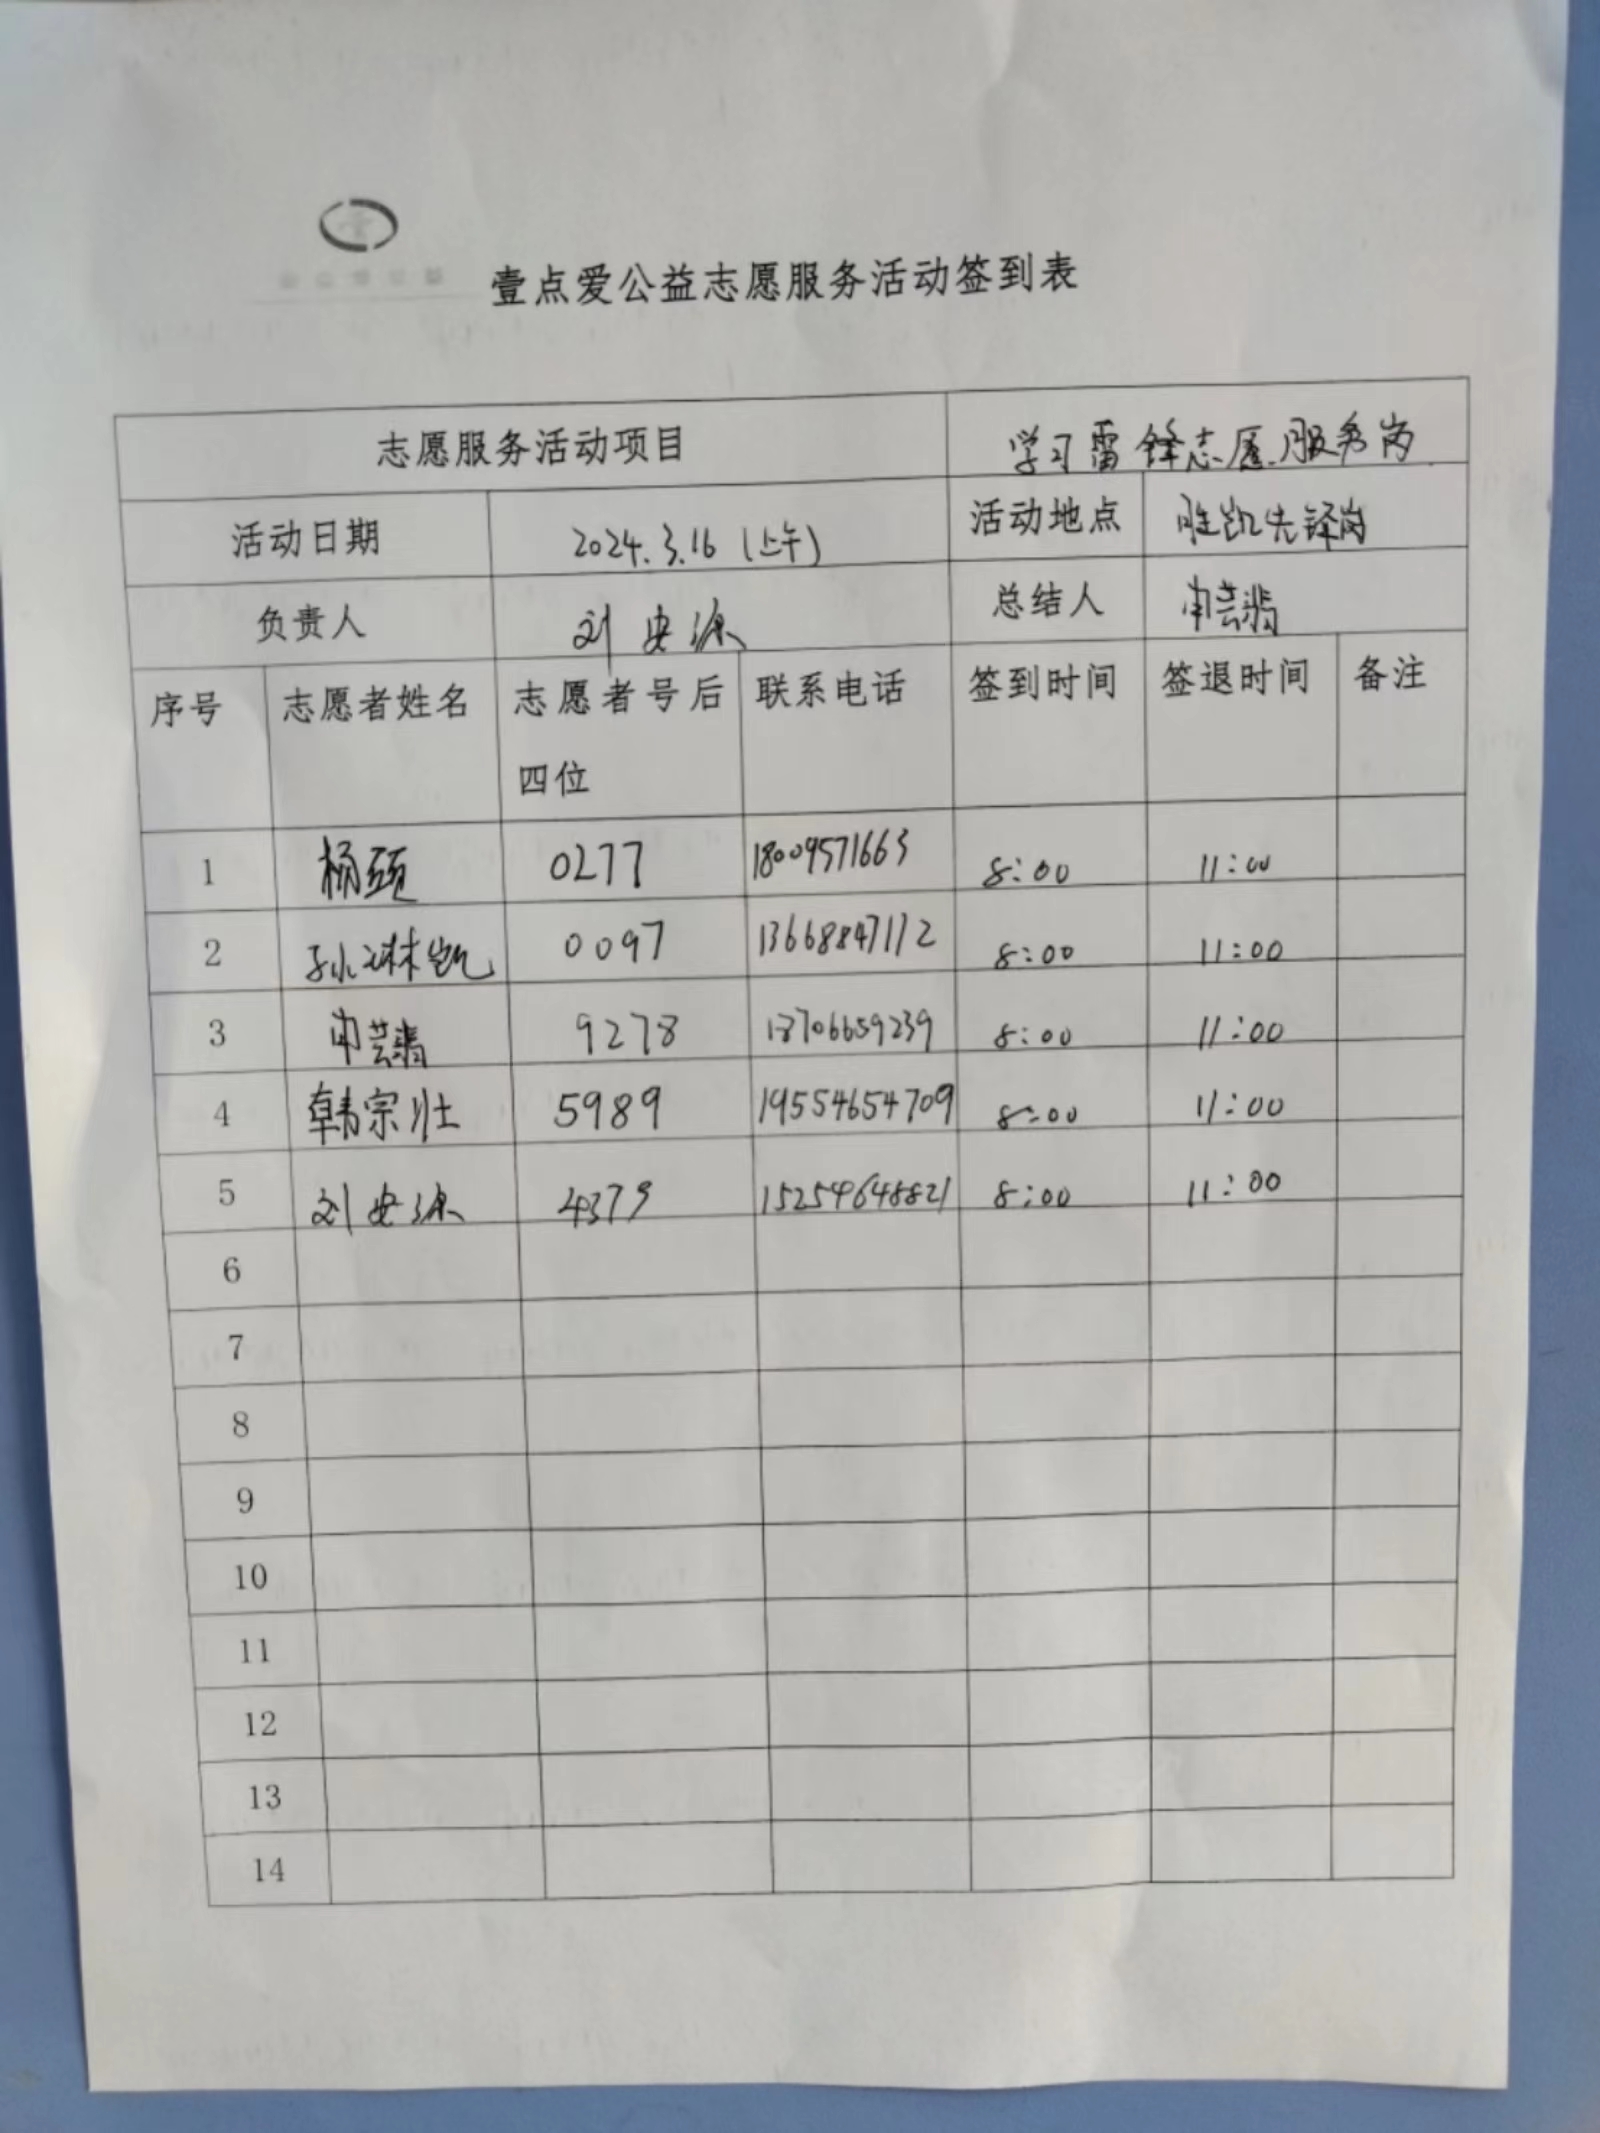 壹点爱公益志愿服务活动签到表
志愿服务活动项目 学习雷锋志愿服务岗
活动日期 2024.3.16(上午) 活动地点 胜凯先锋岗
负责人 刘安源 总结人 申芸翡
序号 志愿者姓名 志愿者号后四位 联系电话 签到时间 签退时间 备注
1 杨硕 0277 18009571663 8:00 11:00
2 孙琳凯 0097 13668847112 8:00 11:00
3 申芸翡 9278 18706659239 8:00 11:00
4 韩宗壮 5989 19554654709 8:00 11:00
5 刘安源 4379 15254648821 8:00 11:00
6
7
8
9
10
11
12
13
14